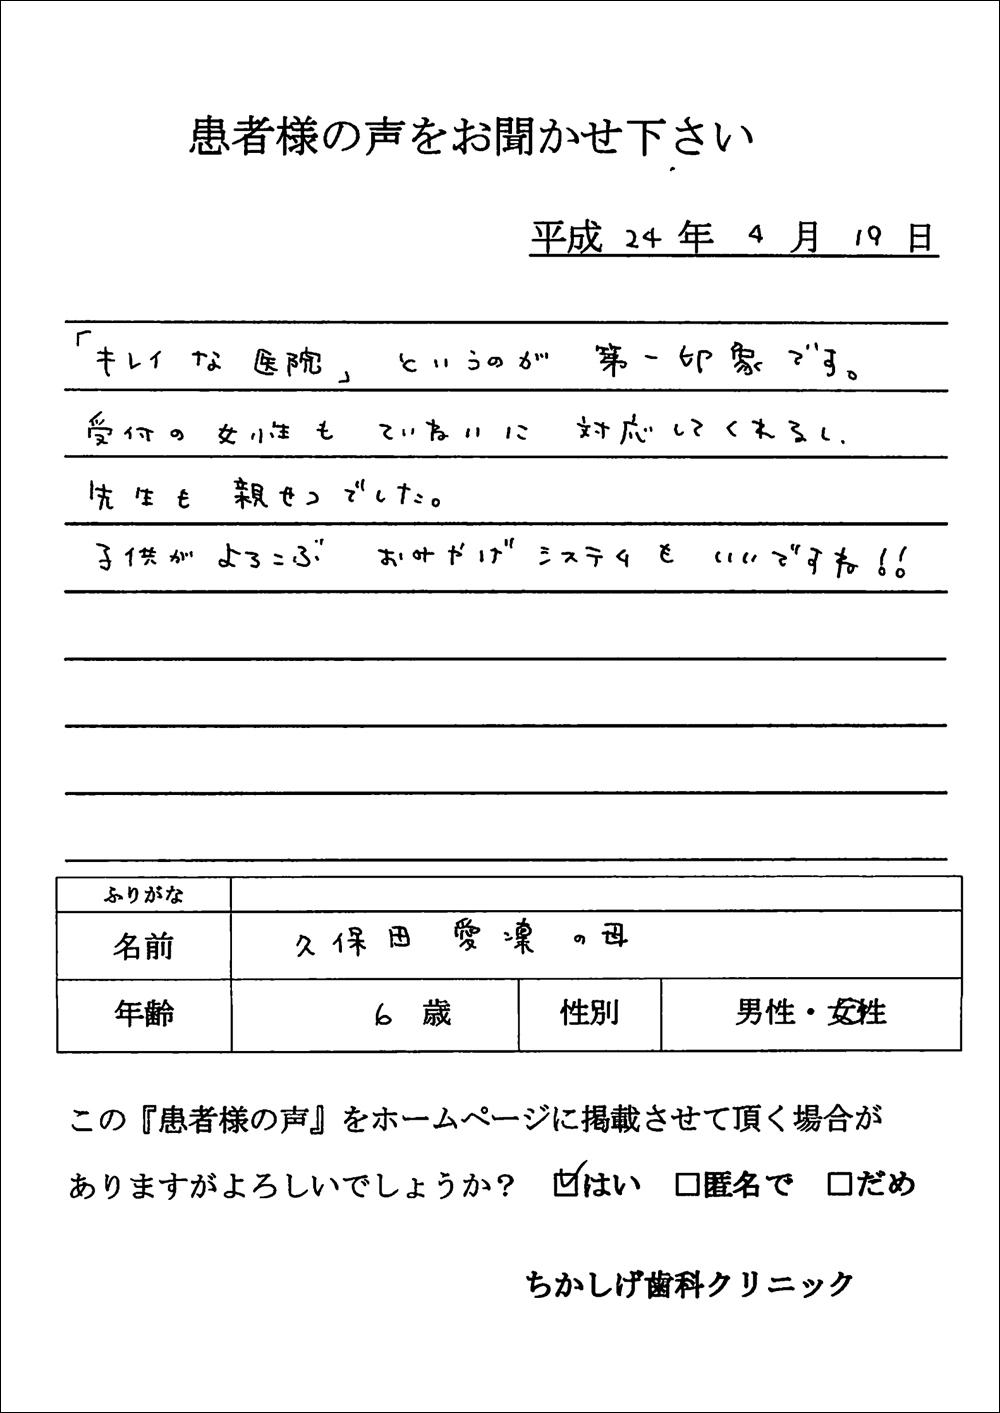 患者様の声をお聞かせ下さい
平成 24 年 4 月 19 日
「キレイな医院」というのが 第一印象です。
受付の女性も ていねいに 対応してくれるし、
先生も 親せつでした。
子供がよろこぶ おみやげシステムも いいですね!!
ふりがな
名前 久保田 愛凜の母
年齢 6 歳 性別 男性・女性
この『患者様の声』をホームページに掲載させて頂く場合が
ありますがよろしいでしょうか? ☑はい □匿名で □だめ
ちかしげ歯科クリニック